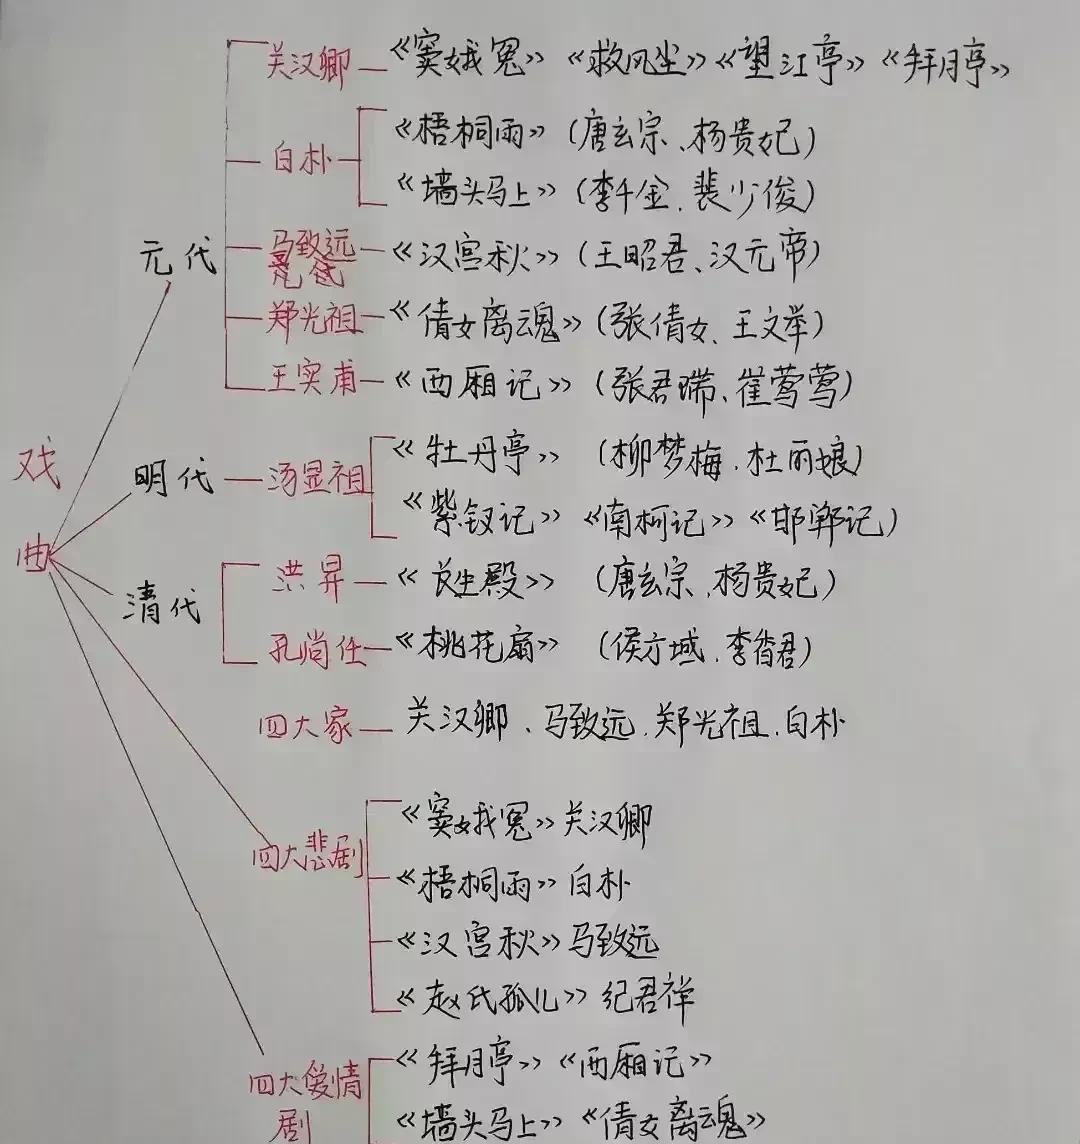 关汉卿 《窦娥冤》《救风尘》《望江亭》《拜月亭》
白朴 《梧桐雨》(唐玄宗、杨贵妃)
《墙头马上》(李千金、裴少俊)
元代
马致远 《汉宫秋》(王昭君、汉元帝)
郑光祖 《倩女离魂》(张倩女、王文举)
王实甫 《西厢记》(张君瑞、崔莺莺)
戏曲
明代 汤显祖 《牡丹亭》(柳梦梅、杜丽娘)
《紫钗记》《南柯记》《邯郸记)
清代 洪昇 《长生殿》(唐玄宗、杨贵妃)
孔尚任 《桃花扇》(侯方域、李香君)
四大家 关汉卿、马致远、郑光祖、白朴
四大悲剧 《窦娥冤》关汉卿
《梧桐雨》白朴
《汉宫秋》马致远
《赵氏孤儿》纪君祥
四大爱情剧 《拜月亭》《西厢记》
《墙头马上》《倩女离魂》